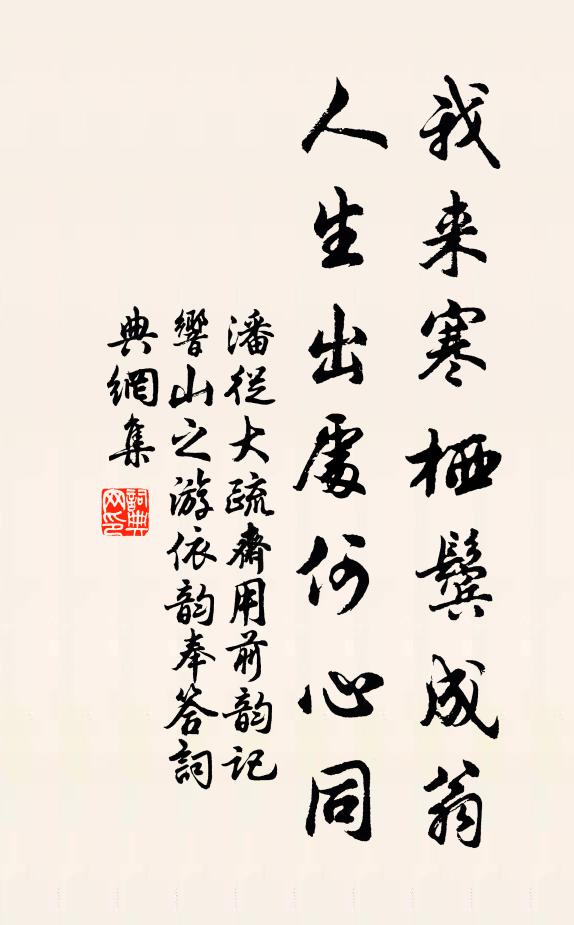 我来寒栖鬓成翁
人生出處何心同
潘從大疏齋用前韵記
響山之游依韵奉答詞
典網集
詞典
网印